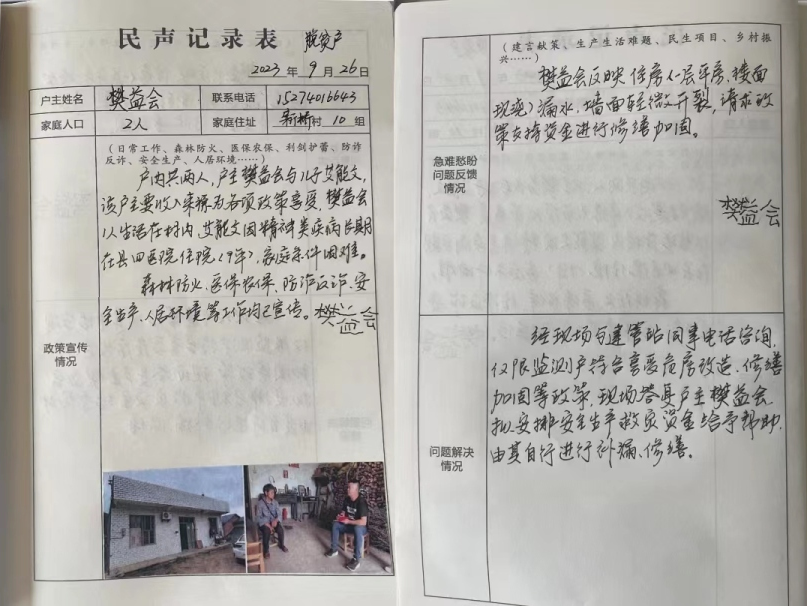 民声记录表 脱贫户
2023年9月26日
户主姓名 樊益会 联系电话 15274016643
家庭人口 2人 家庭住址 新桥村10组
政策宣传情况
(日常工作、森林防火、医保农保、利剑护蕾、防诈
反诈、安全生产、人居环境……)
户内共两人,户主樊益会与儿子艾能文,
该户主要收入来源为各项政策享受,樊益会
1人生活在村内,艾能文因精神类疾病长期
在县四医院住院(9年),家庭条件困难。
森林防火、医保农保、防诈反诈、安
全生产、人居环境等工作均已宣传。樊益会
急难愁盼问题反馈情况
(建言献策、生产生活难题、民生项目、乡村振
兴……)
樊益会反映住房(一层平房,楼面
现浇)漏水,墙面轻微开裂,请求政
策支持资金进行修缮加固。
樊益会
问题解决情况
经现场与建管站同事电话咨询,
仅限监测户符合享受危房改造、修缮
加固等政策,现场答复户主樊益会,
拟安排安全生产救灾资金给予帮助,
由其自行进行补漏、修缮。